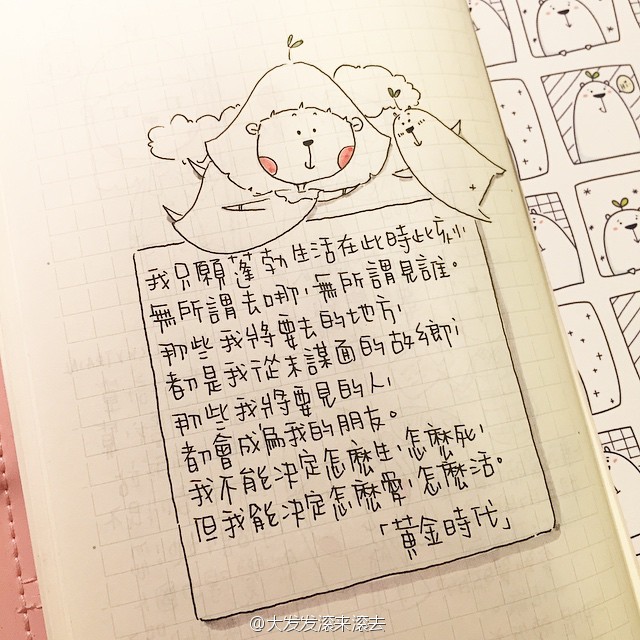 我只願蓬勃生活在此時此刻，
無所謂去哪，無所謂見誰。
那些我將要去的地方，
都是我從未謀面的故鄉；
那些我將要見的人，
都會成為我的朋友。
我不能決定怎麼生，怎麼死，
但我能決定怎麼愛，怎麼活。
「黃金時代」
@大发发滚来滚去